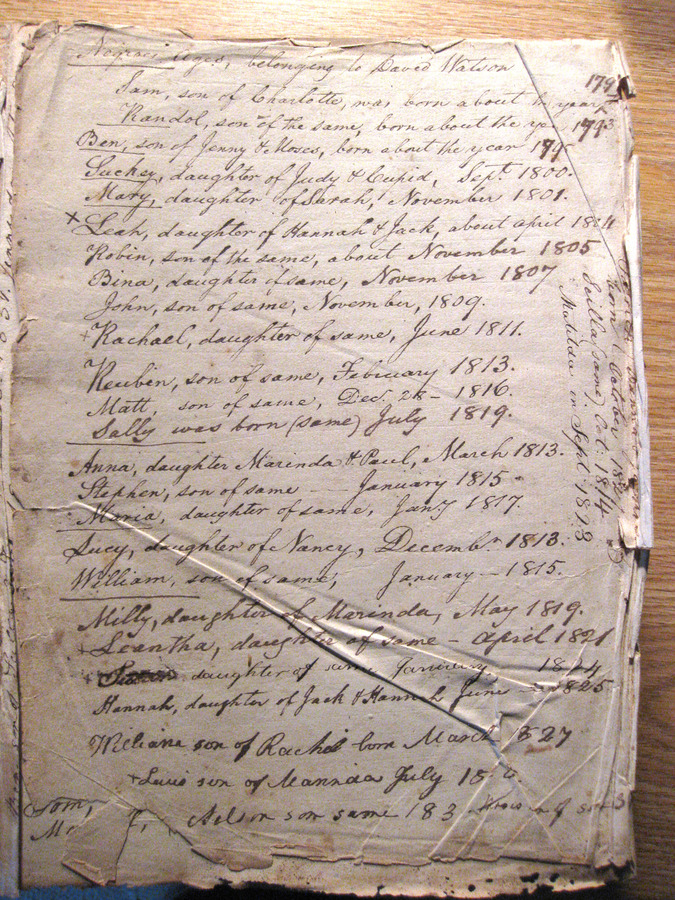 Negroes ages, belonging to David Watson
Sam, son of Charlotte, was born about the year 179
Randol, son of the same, born about the year 1793
Ben, son of Jenny & Moses, born about the year 179
Suckey, daughter of Judy & Cupid, Sept. 1800.
Mary, daughter of Sarah, November 1801.
+ Leah, daughter of Hannah & Jack, about april 1804
Robin, son of the same, about November 1805
Bina, daughter of same, November 1807
John, son of same, November, 1809.
+ Rachael, daughter of same, June 1811.
Reuben, son of same, February 1813.
Matt, son of same, Dec. 28 - 1816.
Sally was born (same) July 1819.
Anna, daughter Marinda & Paul, March 1813.
Stephen, son of same — January 1815
Maria, daughter of same, Jany 1817.
Lucy, daughter of Nancy, Decembr. 1813.
William, son of same, January - 1815.
Milly, daughter of Marinda, May 1819.
+ Leantha, daughter of same - april 1821
+ daughter of same January 1824
Hannah, daughter of Jack & Hannah June 1825
William son of Rachel born March 1827
+ Lewis son of Marinda July 18
Tom,
Nelson son same 183
born October
Scilla (same) Oct. 1814
Matilda in Sept. 1813